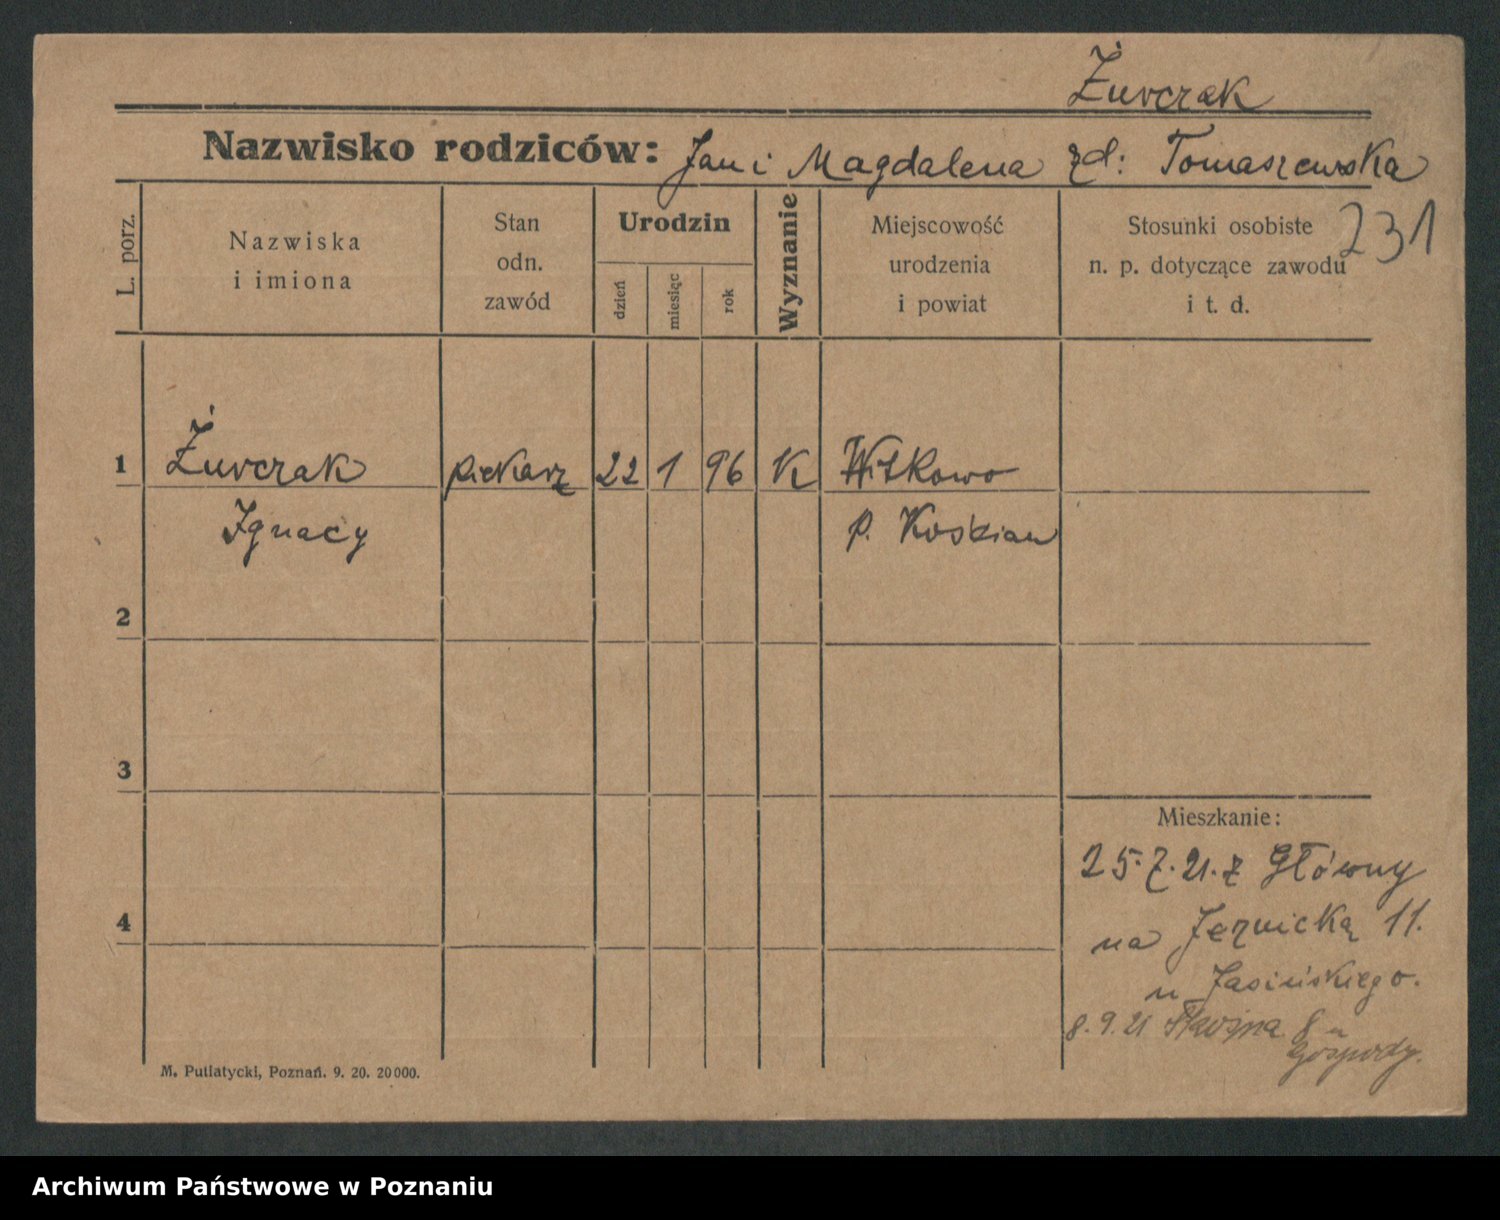 Żurczak
Nazwisko rodziców: Jan i Magdalena zd: Tomaszewska
231
L. porz.
Nazwiska
i imiona
Stan
odn.
zawód
Urodzin
dzień
miesiąc
rok
Wyznanie
Miejscowość
urodzenia
i powiat
Stosunki osobiste
n. p. dotyczące zawodu
i t. d.
1 Żurczak piekarz 22 1 96 K Witkowo
Ignacy p. Kościan
2
3
4
Mieszkanie:
25.7.21. z Główny
na 11.
u Jasińskiego.
8.9.21 8 u
Gospody.
M. Putiatycki, Poznań. 9. 20. 20000.
Archiwum Państwowe w Poznaniu